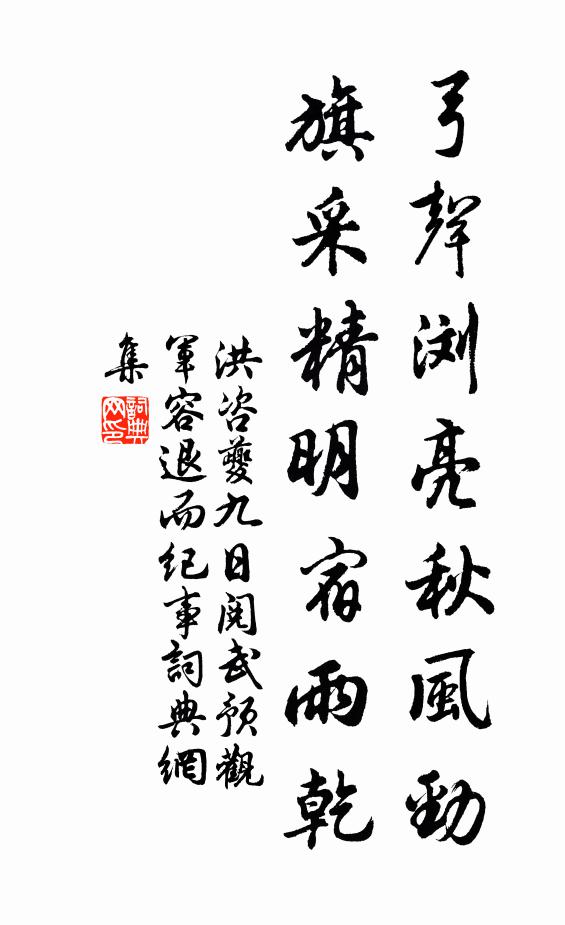 弓聲浏亮秋風勁
旗采精明宿雨乾
洪咨夔九日閱武預觀
軍容退而纪事詞典網
集
詞典
网印